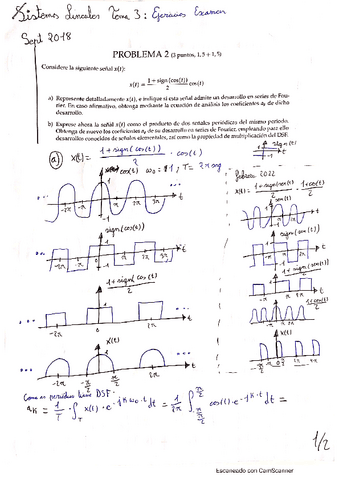 Sistemas Lineales Tema 3: Ejercicios Examen
Sept 2018
PROBLEMA 2 (3 puntos, 1,5 + 1,5)
Considere la siguiente señal x(t):
x(t) = 1 + sign(cos(t)) / 2 cos(t)
a) Represente detalladamente x(t), e indique si esta señal admite un desarrollo en series de Fourier. En caso afirmativo, obtenga mediante la ecuación de análisis los coeficientes ak de dicho desarrollo.
b) Exprese ahora la señal x(t) como el producto de dos señales periódicas del mismo periodo. Obtenga de nuevo los coeficientes ak de su desarrollo en series de Fourier, empleando para ello desarrollos conocidos de señales elementales, así como la propiedad de multiplicación del DSF.
a) x(t) = 1 + sign(cos(t)) / 2 · cos(t)
sign(t)
cos(t) ω0 = 1, T = 2π
febrero 2022
sign(cos(t))
1 + sign(cos(t)) / 2
x(t)
sign(sen(t))
1 + sign(sen(t)) / 2
x(t)
Como es periódica tiene DSF.
aK = 1/T · ∫T x(t) · e^-jKω0·t dt = 1/2π ∫ cos(t) · e^-jK·t dt =
1/2
Escaneado con CamScanner